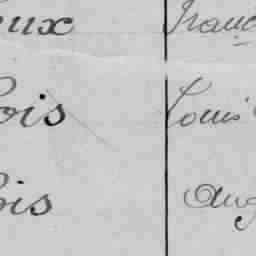 eux Franç
ois Louis
ois Aug